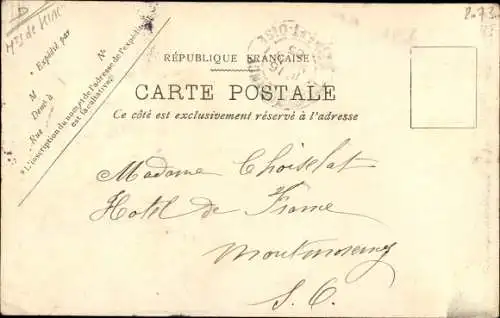 * Expédié par
M
Demt à
Rue
N°
* L'inscription du nom et de l'adresse de l'expéditeur
est facultative.
RÉPUBLIQUE FRANÇAISE
CARTE POSTALE
Ce côté est exclusivement réservé à l'adresse
Madame Choiselat
Hotel de France
Montmorency
S. O.